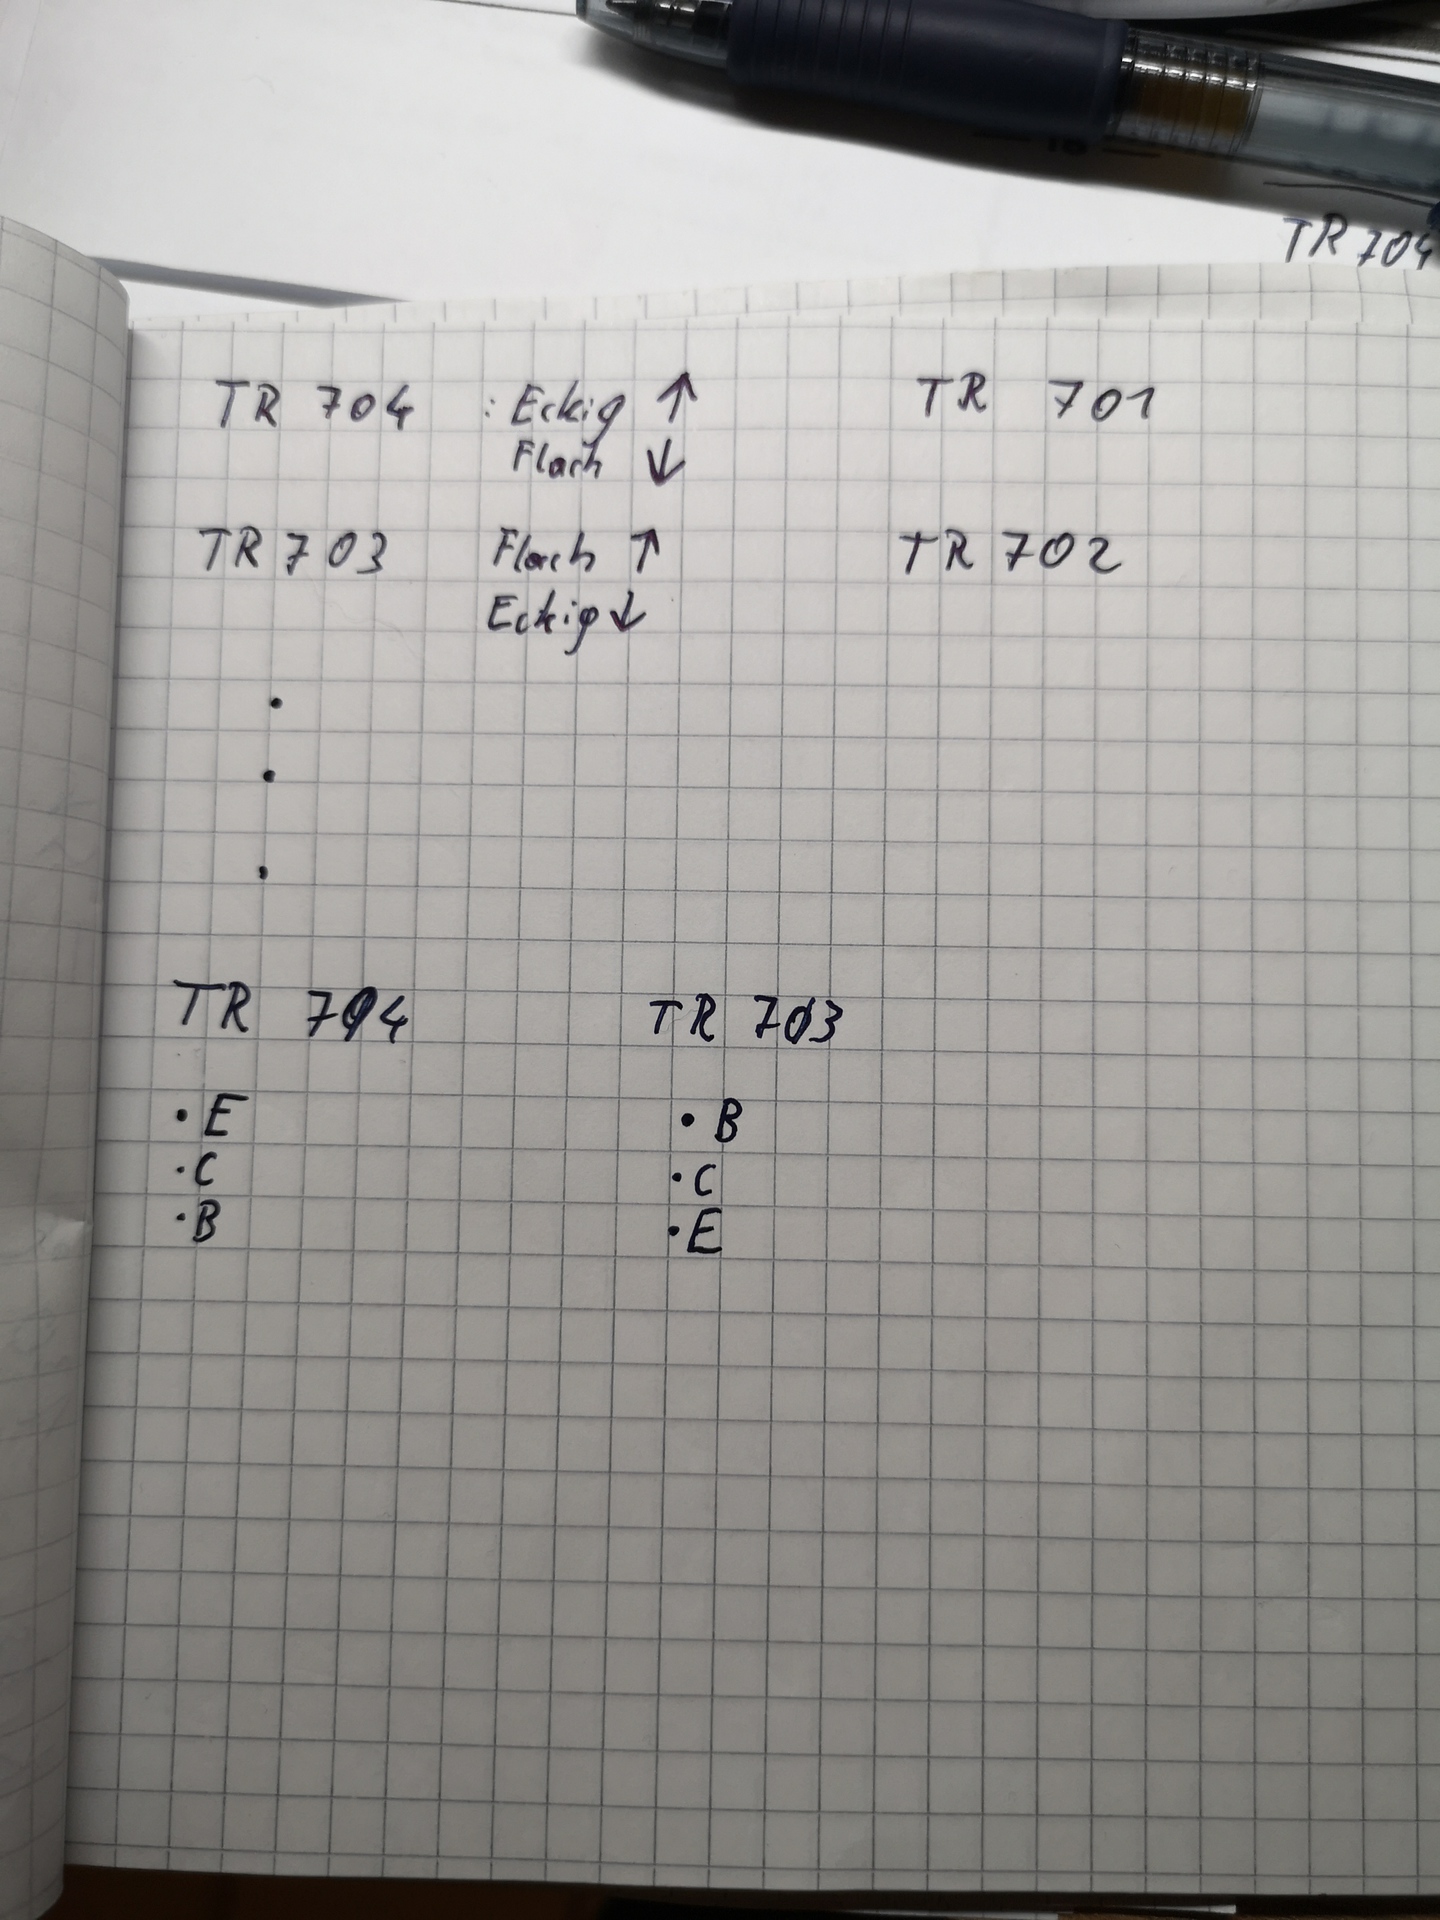 TR 704
TR 704 : Eckig ↑ TR 701
Flach ↓
TR 703 Flach ↑ TR 702
Eckig ↓
TR 704 TR 703
• E • B
• C • C
• B • E